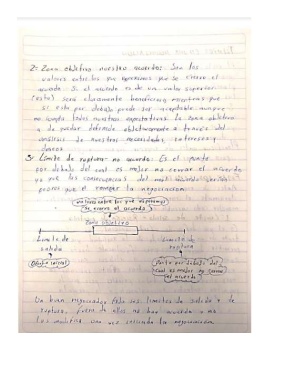 2- Zona objetivo nuestro acuerdo: Son los
valores entre los que esperamos que se cierre el
acuerdo. Si el acuerdo es de un valor superior
(este) será claramente beneficioso mientras que
si esta por debajo puede ser aceptable aunque
no cumpla todas nuestras expectativas. La zona objetivo
a de poder defenderla objetivamente a través del
análisis de nuestras necesidades, intereses y
deseos
3- Límite de ruptura no acuerdo: Es el punto
por debajo del cual es mejor no cerrar el acuerdo
ya que las consecuencias del mal acuerdo serían
peores que el romper la negociación.
valores entre los que esperamos
que se cierre el acuerdo
Zona objetivo
Límite de salida
Límite de ruptura
Oferta inicial
Punto por debajo del
cual es mejor no cerrar
el acuerdo
Un buen negociador fija sus límites de salida y de
ruptura, fuera de ellos no hay acuerdo y no
los modifica una vez iniciada la negociación